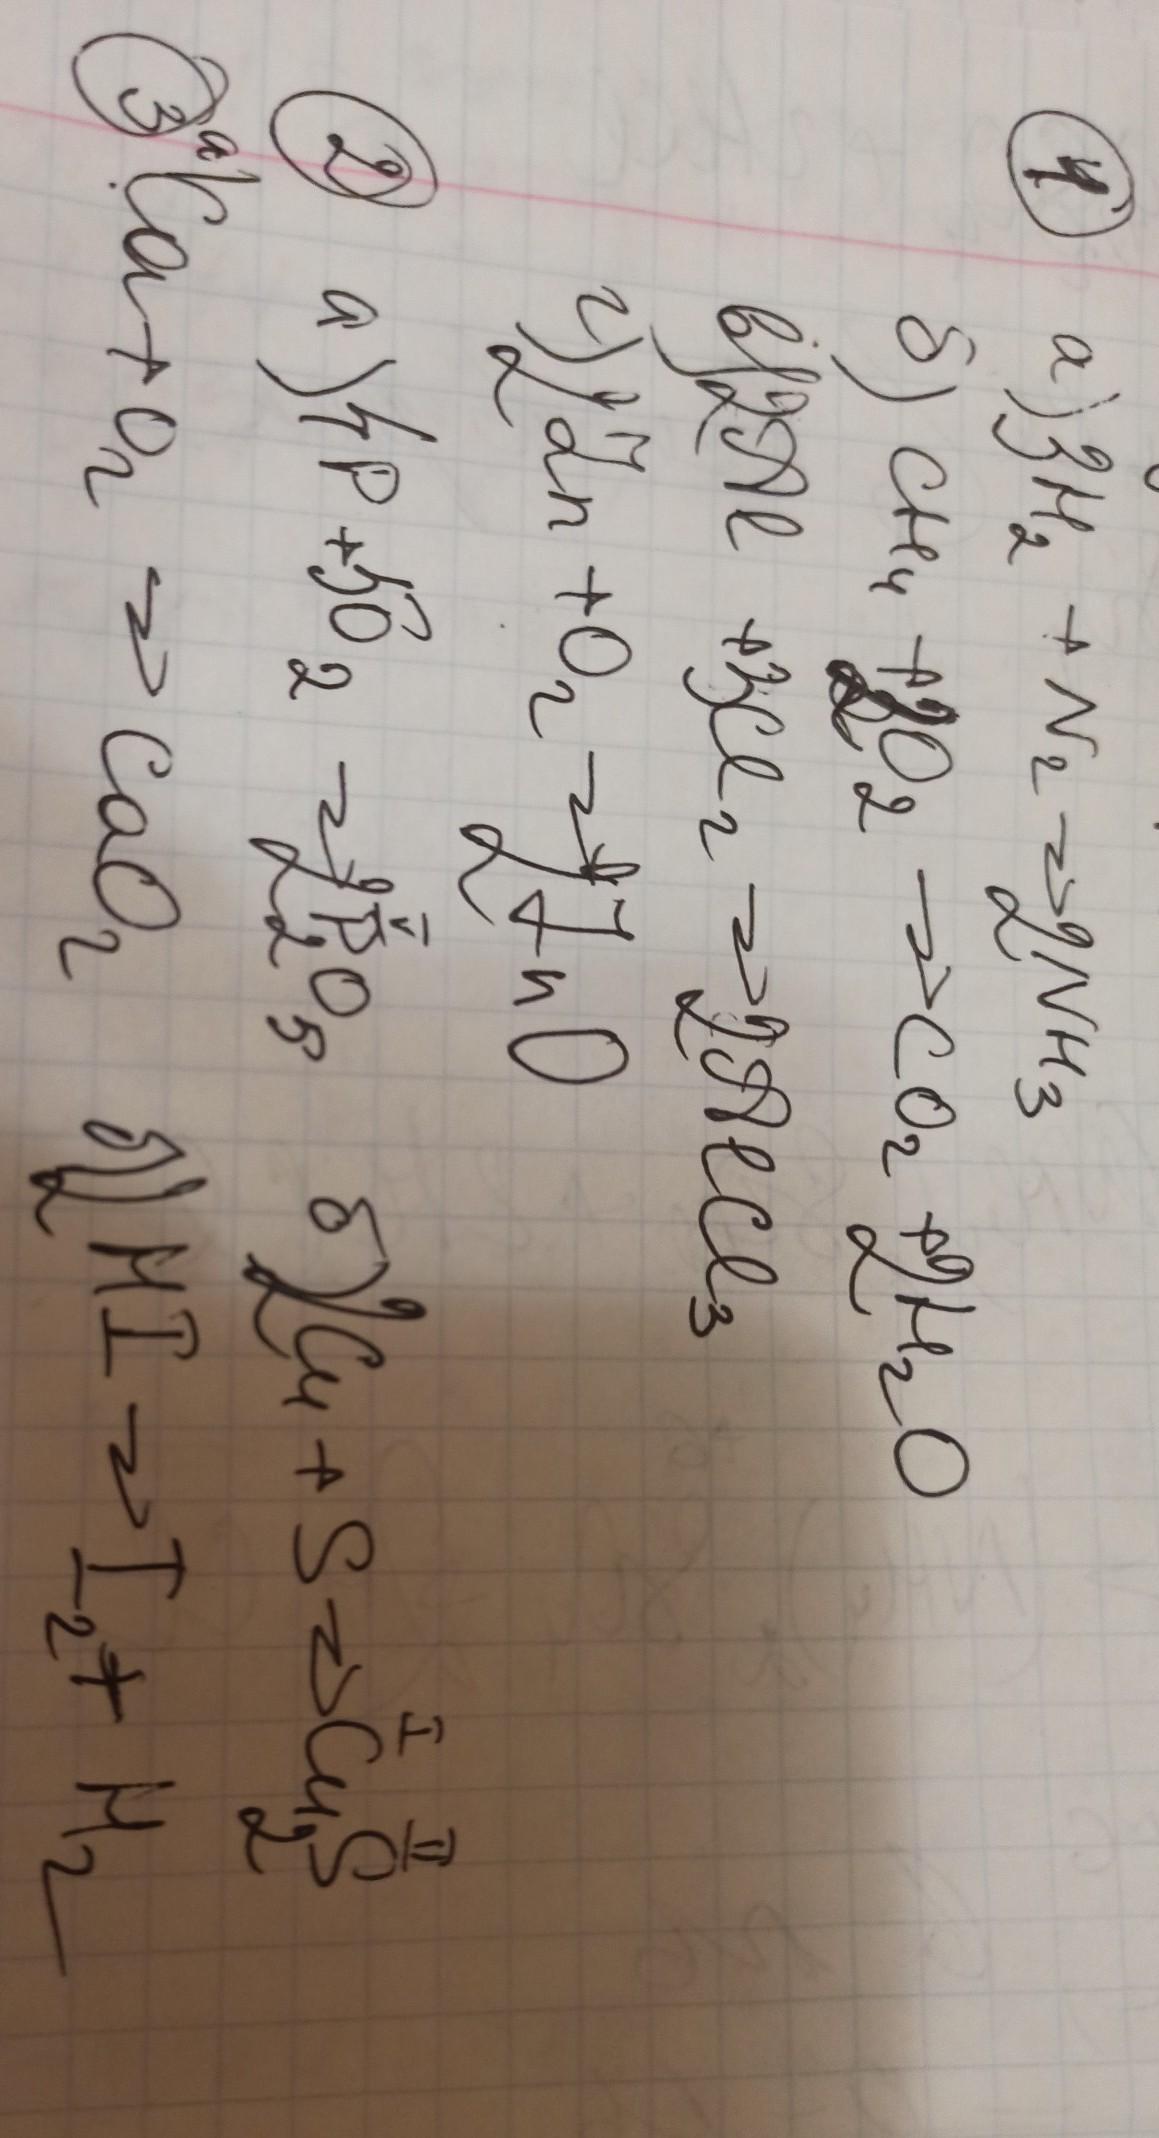 1 а) 3H₂ + N₂ → 2NH₃
б) CH₄ + 2O₂ → CO₂ + 2H₂O
в) 2Al + 3Cl₂ → 2AlCl₃
г) 2Zn + O₂ → 2ZnO
2 а) 4P + 5O₂ → 2P₂O₅ б) 2Cu + S → Cu₂S
V I II
3 а) Ca + O₂ → CaO₂ б) 2HI → I₂ + H₂